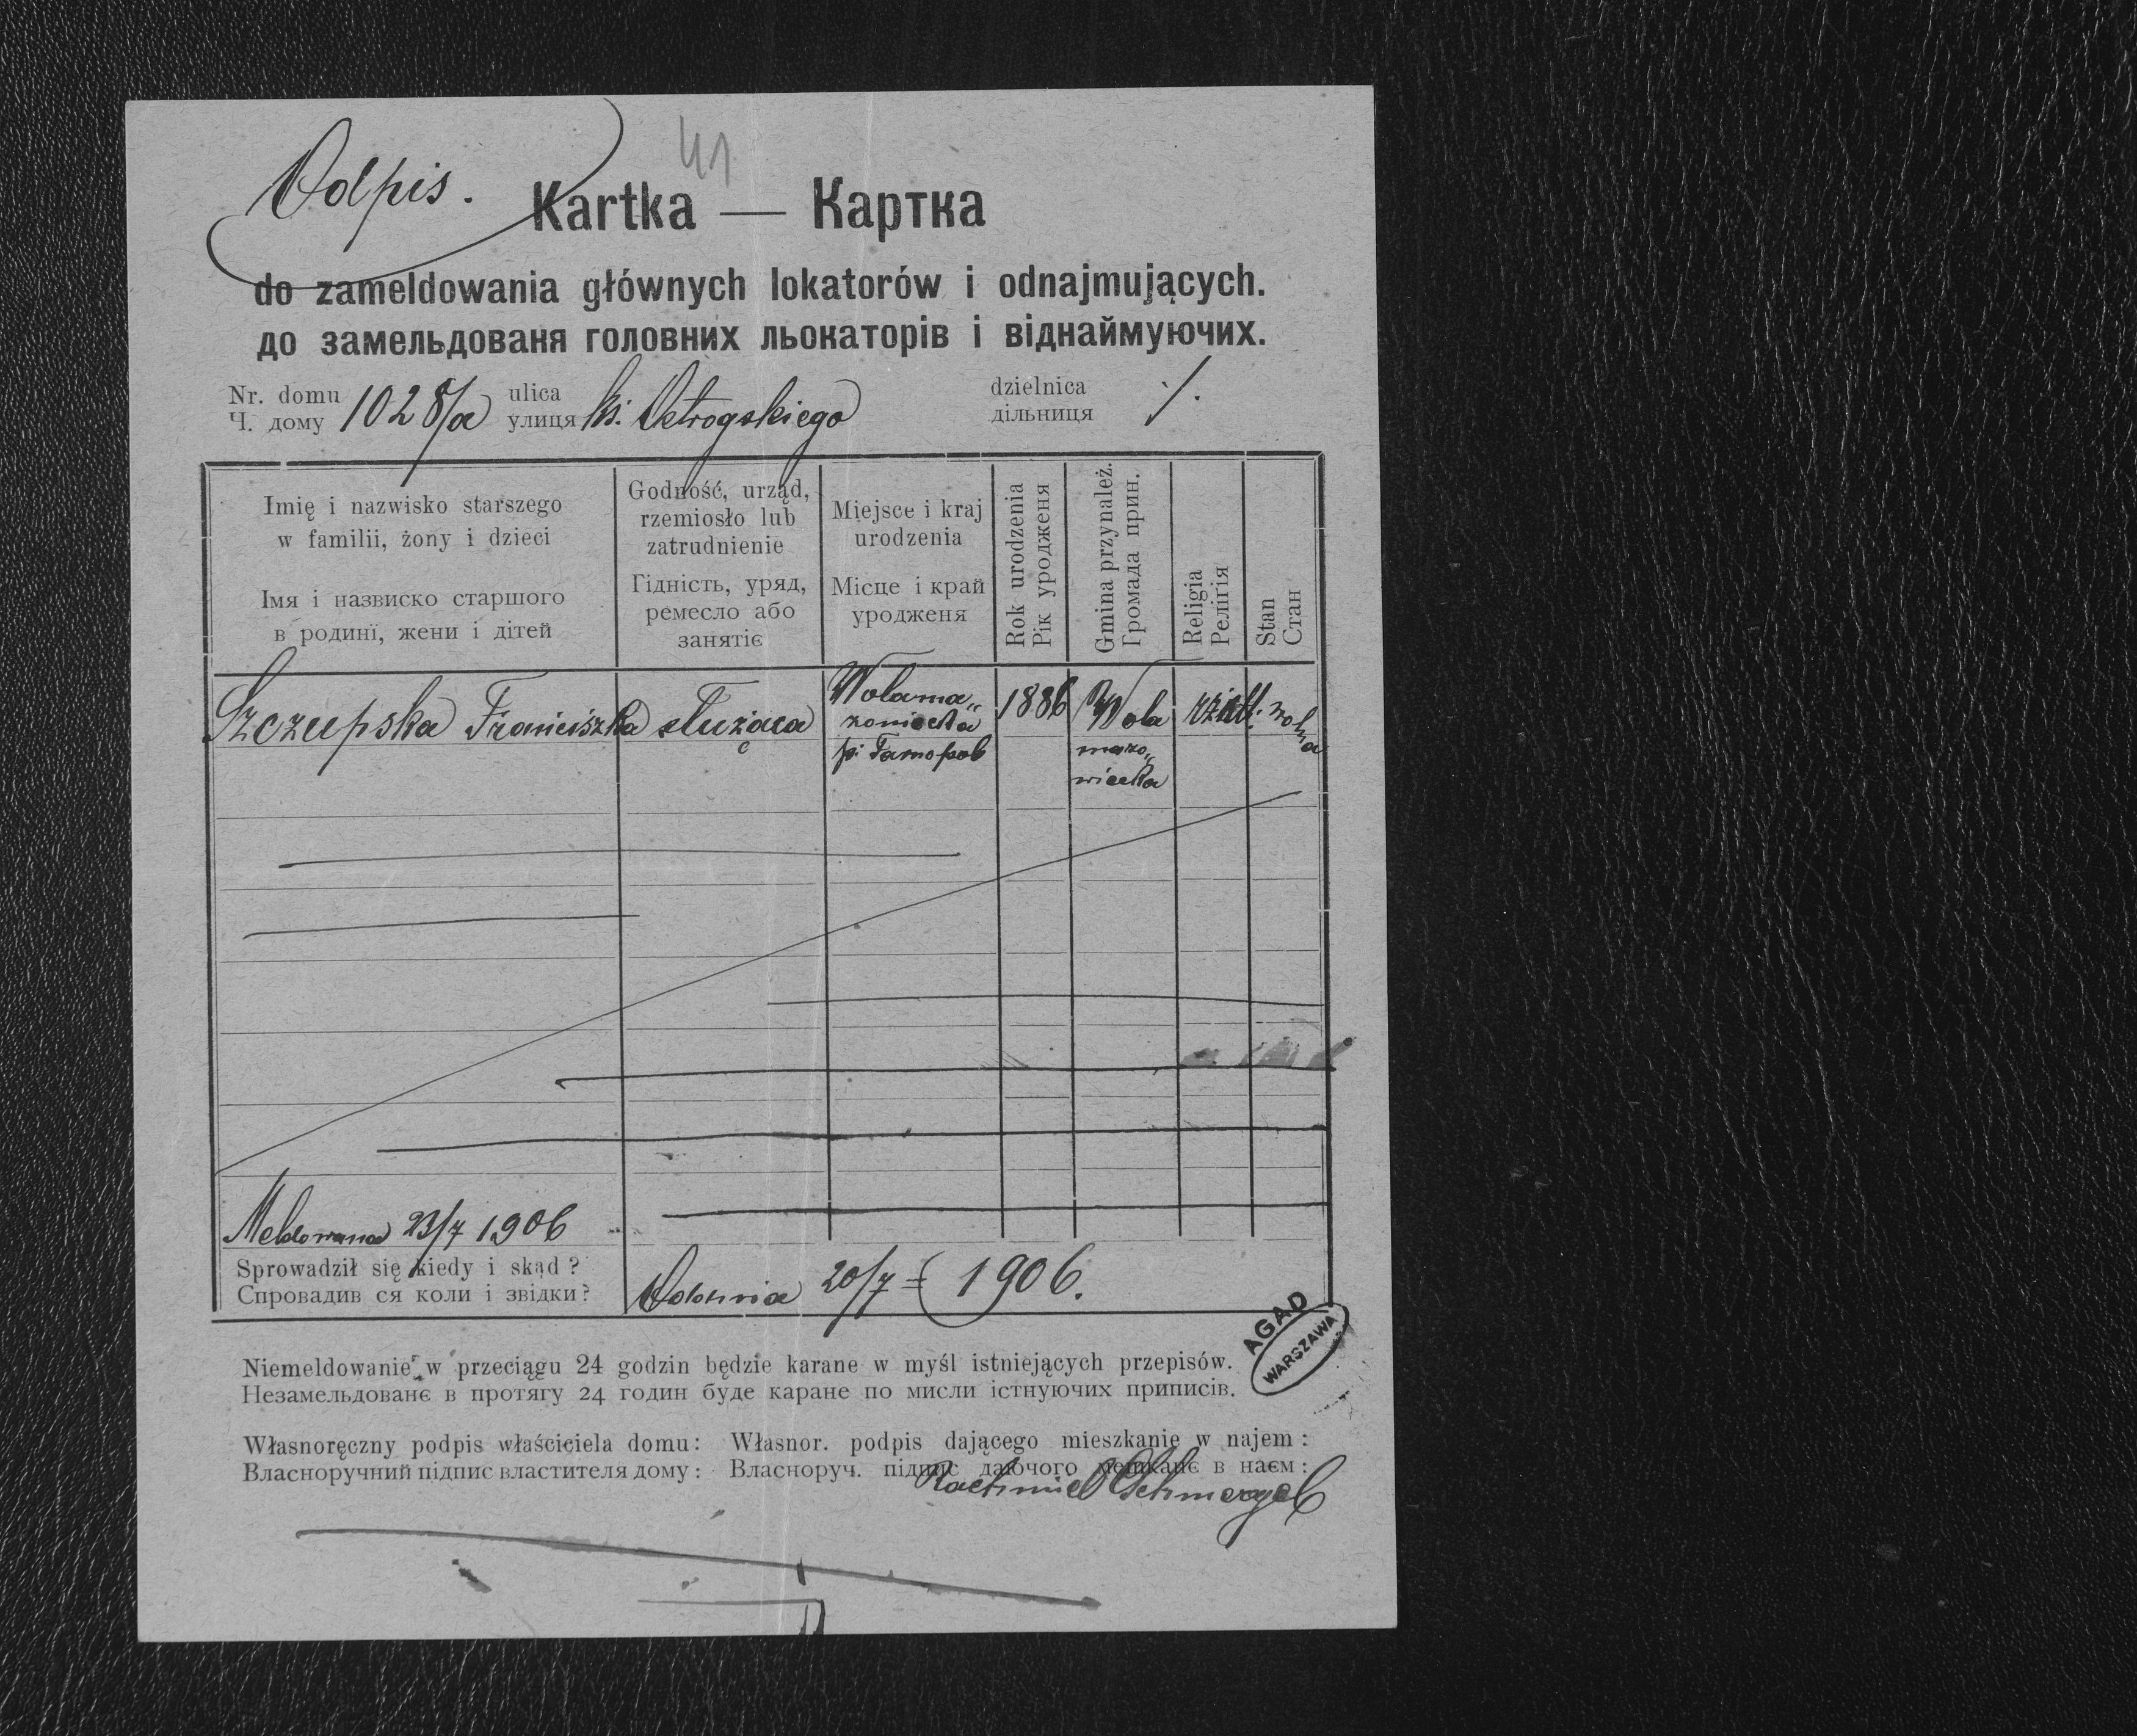 Odpis.
41
Kartka — Картка
do zameldowania głównych lokatorów i odnajmujących.
до замельдованя головних льокаторів і віднаймуючих.
Nr. domu
Ч. дому
1028/a
ulica
улиця
ks. Ostrogskiego
dzielnica
дільниця
Imię i nazwisko starszego
w familii, żony i dzieci
Імя і назвиско старшого
в родинї, жени і дїтей
Godność, urząd,
rzemiosło lub
zatrudnienie
Гідність, уряд,
ремесло або
занятіє
Miejsce i kraj
urodzenia
Місце і край
уродженя
Rok urodzenia
Рік уродженя
Gmina przynależ.
Громада прин.
Religia
Релігія
Stan
Стан
Szczupska Franciszka
służąca
Wolama„
zowiecka
p. Tarnopol
1886
Wola
mazo„
wiecka
rzkat.
wolna
Meldowana 23/7 1906
Sprowadził się kiedy i skąd?
Спровадив ся коли і звідки?
20/7 1906.
Niemeldowanie w przeciągu 24 godzin będzie karane w myśl istniejących przepisów.
Незамельдованє в протягу 24 годин буде каране по мисли істнуючих приписів.
AGAD
WARSZAWA
Własnoręczny podpis właściciela domu:
Власноручний підпис властителя дому:
Własnor. podpis dającego mieszkanie w najem:
Власноруч. підпис даючого мешканє в наєм:
Rachmiel Schmergel